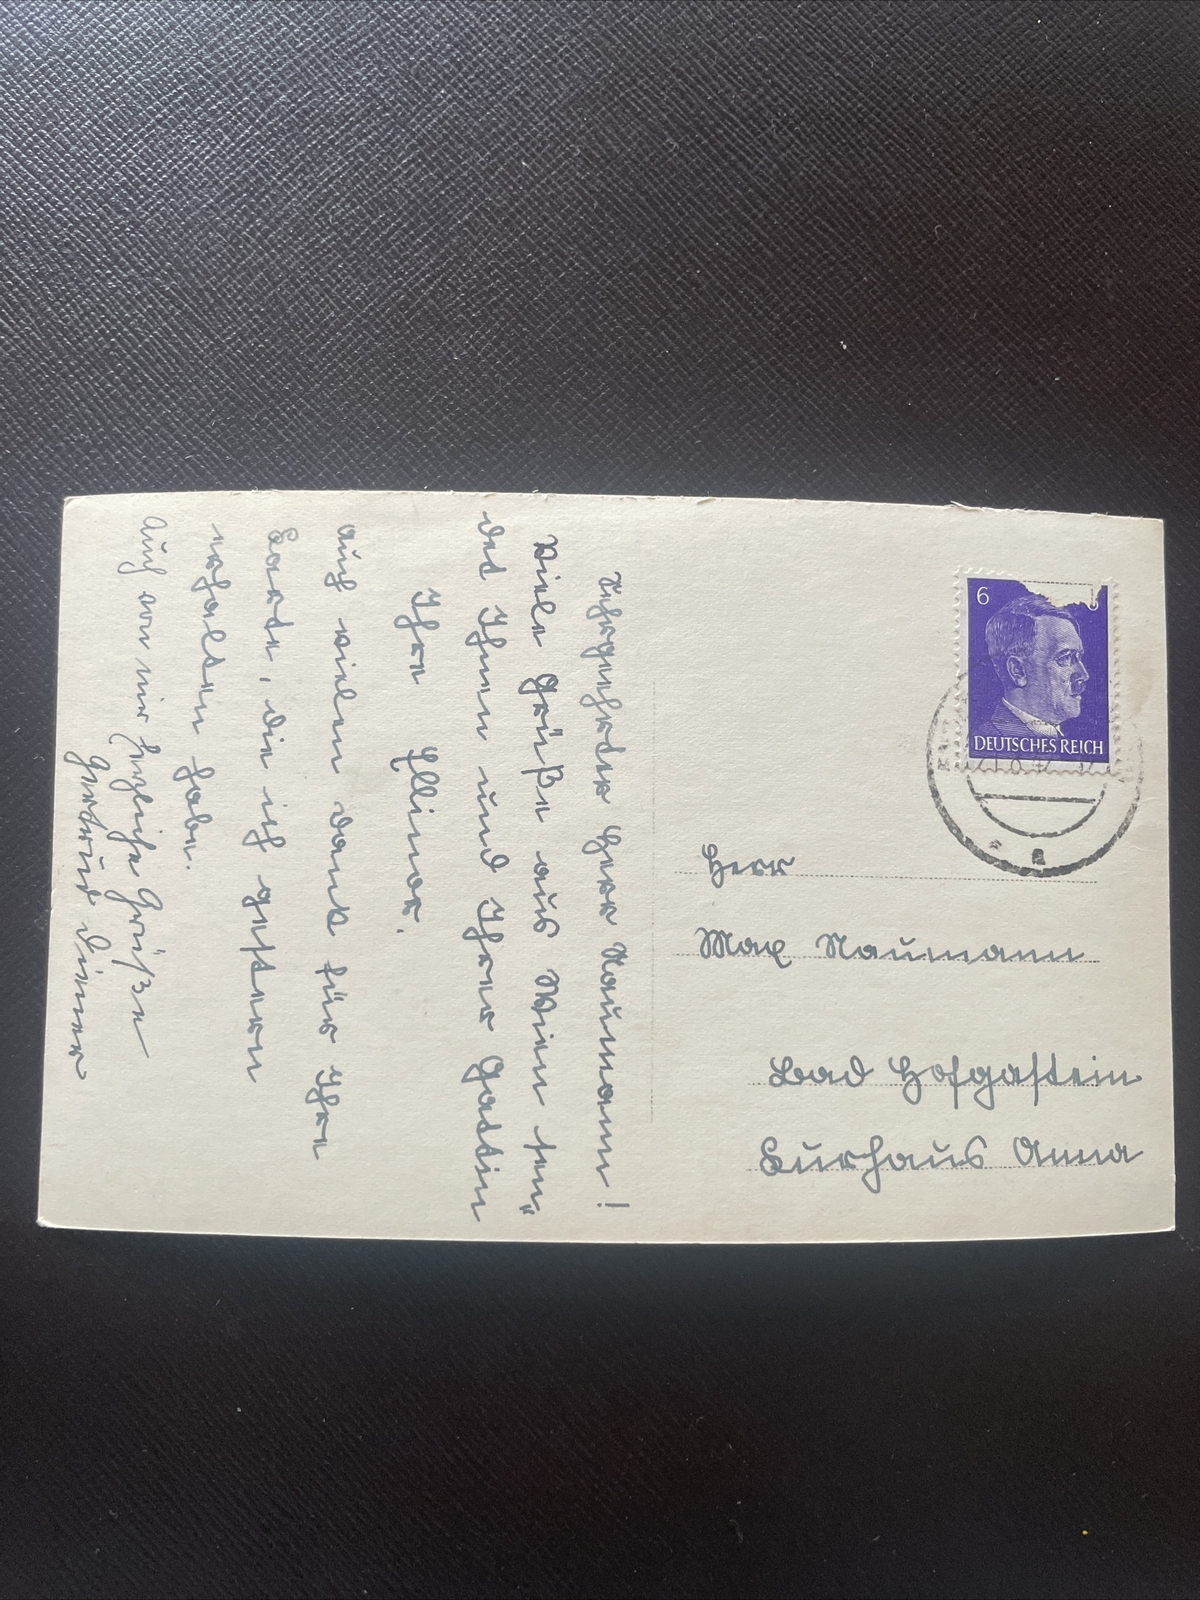 Sehrgeehrter Herr Naumann!
Viele Grüße aus Wien sen"
det Ihnen und Ihrer Gattin
Ihre Ellinor.
Auch vielen Dank für Ihre
Karte, die ich gestern
erhalten habe.
Auch von mir herzliche Grüße
Gertrud Diener
6
DEUTSCHES REICH
Herr
Max Naumann
Bad Hofgastein
Kurhaus Anna